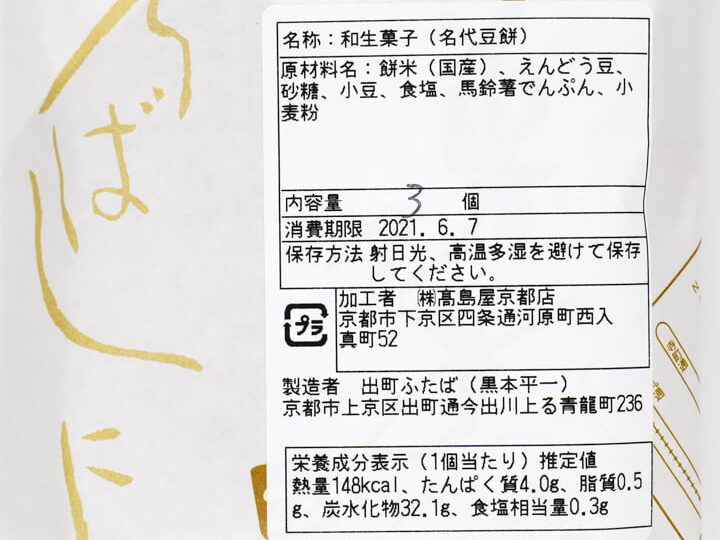 名称：和生菓子（名代豆餅）
原材料名：餅米（国産）、えんどう豆、
砂糖、小豆、食塩、馬鈴薯でんぷん、小
麦粉
内容量 3 個
消費期限 2021. 6. 7
保存方法 射日光、高温多湿を避けて保存
してください。
プラ
加工者 ㈱髙島屋京都店
京都市下京区四条通河原町西入
真町52
製造者 出町ふたば（黒本平一）
京都市上京区出町通今出川上る青龍町236
栄養成分表示（1個当たり）推定値
熱量148kcal、たんぱく質4.0g、脂質0.5
g、炭水化物32.1g、食塩相当量0.3g